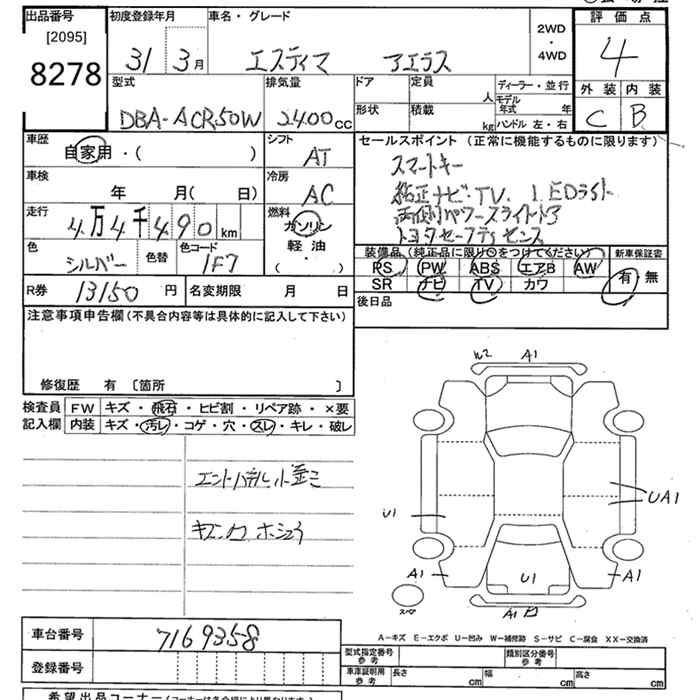 出品番号 [2095] 8278
初度登録年月 31 3月
車名・グレード エスティマ アエラス
2WD・4WD
評価点 4
外装 C 内装 B
型式 DBA-ACR50W
排気量 2400cc
ドア 形状
定員 人 積載 kg
ディーラー・並行
モデル年式 年
ハンドル 左・右
車歴 自家用・( )
シフト AT
セールスポイント (正常に機能するものに限ります)
スマートキー
純正ナビ・TV. LEDライト
両側パワースライドドア
トヨタセーフティセンス
車検 年 月( 日)
冷房 AC
走行 4万4千490km
燃料 ガソリン 軽・油 ( )
色 シルバー 色替 色コード 1F7
装備品 (純正品に限り○をつけてください) 新車保証書
PS PW ABS エアB AW 有・無
SR ナビ TV カワ
R券 13150円 名変期限 月 日
後日品
注意事項申告欄(不具合内容等は具体的に記入して下さい)
修復歴 有 〔箇所 〕
検査員記入欄
FW キズ・飛石・ヒビ割・リペア跡・×要
内装 キズ・汚レ・コゲ・穴・スレ・キレ・破レ
W2 A1
U1
UA1
A1
U1
A1
A1
A-キズ E-エクボ U-凹み W-補修跡 S-サビ C-腐食 XX-交換済
車台番号 7169358
登録番号
型式指定番号 参考
類別区分番号 参考
車庫証明用 参考 長さ cm 幅 cm 高さ cm
希望出品コーナー